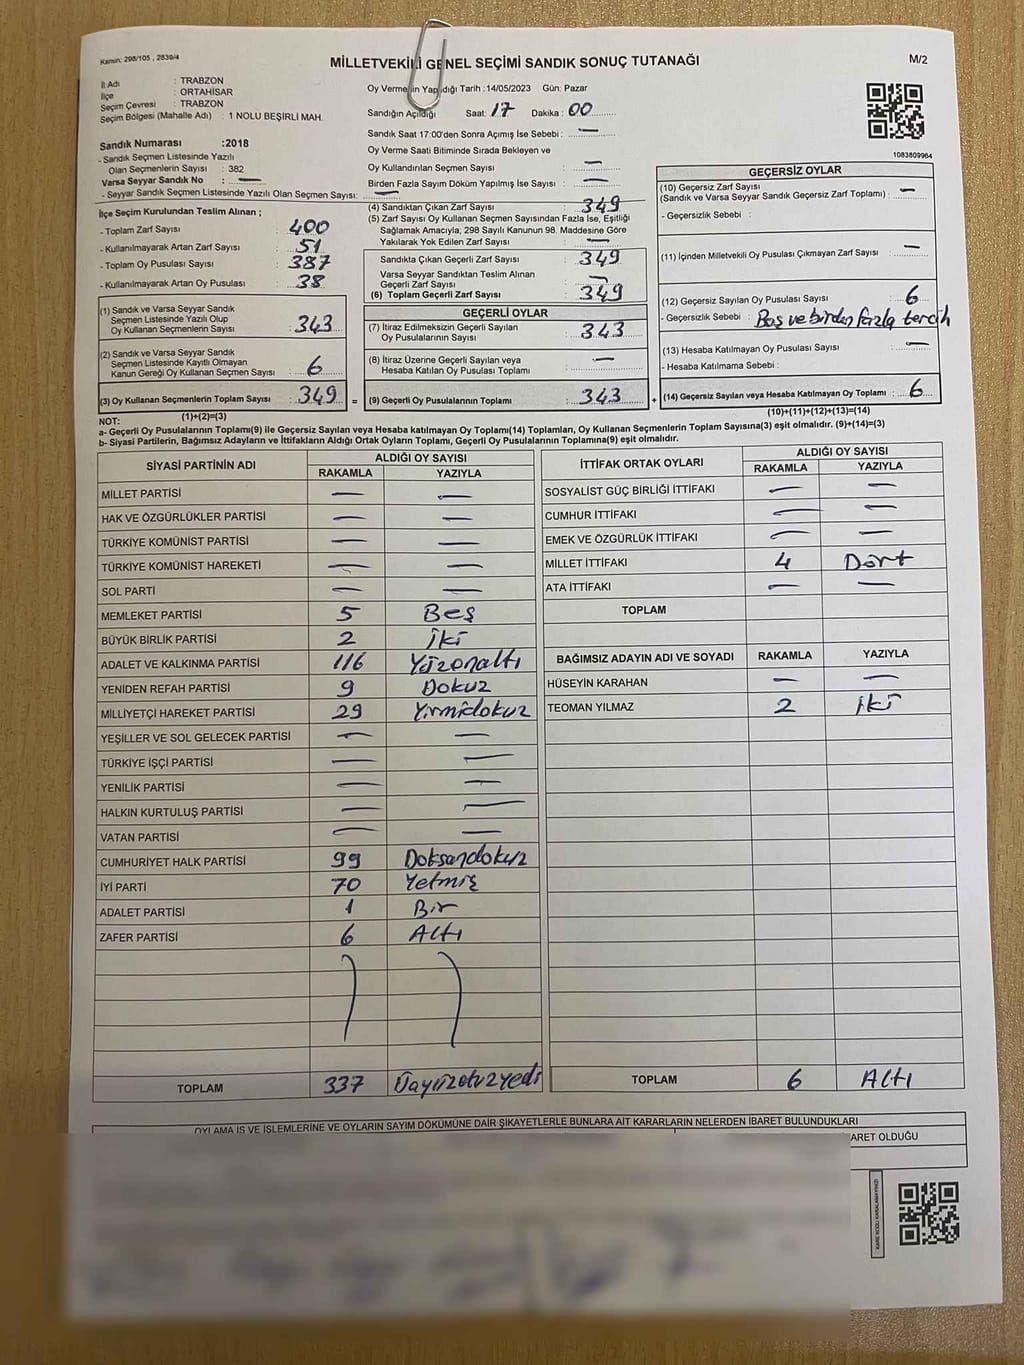 Kanun: 298/105 , 2839/4
MİLLETVEKİLİ GENEL SEÇİMİ SANDIK SONUÇ TUTANAĞI
M/2
İl Adı : TRABZON
İlçe : ORTAHİSAR
Seçim Çevresi : TRABZON
Seçim Bölgesi (Mahalle Adı) : 1 NOLU BEŞİRLİ MAH.
Sandık Numarası :2018
- Sandık Seçmen Listesinde Yazılı
Olan Seçmenlerin Sayısı : 382
Varsa Seyyar Sandık No : —
- Seyyar Sandık Seçmen Listesinde Yazılı Olan Seçmen Sayısı: —
Oy Vermenin Yapıldığı Tarih :14/05/2023 Gün: Pazar
Sandığın Açıldığı Saat: 17 Dakika : 00
Sandık Saat 17:00'den Sonra Açımış İse Sebebi : —
Oy Verme Saati Bitiminde Sırada Bekleyen ve
Oy Kullandırılan Seçmen Sayısı : —
Birden Fazla Sayım Döküm Yapılmış İse Sayısı : —
1083809964
İlçe Seçim Kurulundan Teslim Alınan ;
- Toplam Zarf Sayısı : 400
- Kullanılmayarak Artan Zarf Sayısı : 51
- Toplam Oy Pusulası Sayısı : 387
- Kullanılmayarak Artan Oy Pusulası : 38
(1) Sandık ve Varsa Seyyar Sandık
Seçmen Listesinde Yazılı Olup
Oy Kullanan Seçmenlerin Sayısı : 343
(2) Sandık ve Varsa Seyyar Sandık
Seçmen Listesinde Kayıtlı Olmayan
Kanun Gereği Oy Kullanan Seçmen Sayısı : 6
(3) Oy Kullanan Seçmenlerin Toplam Sayısı : 349 =
(1)+(2)=(3)
(4) Sandıktan Çıkan Zarf Sayısı : 349
(5) Zarf Sayısı Oy Kullanan Seçmen Sayısından Fazla İse, Eşitliği
Sağlamak Amacıyla; 298 Sayılı Kanunun 98. Maddesine Göre
Yakılarak Yok Edilen Zarf Sayısı : —
Sandıkta Çıkan Geçerli Zarf Sayısı : 349
Varsa Seyyar Sandıktan Teslim Alınan
Geçerli Zarf Sayısı : —
(6) Toplam Geçerli Zarf Sayısı : 349
GEÇERLİ OYLAR
(7) İtiraz Edilmeksizin Geçerli Sayılan
Oy Pusulalarının Sayısı : 343
(8) İtiraz Üzerine Geçerli Sayılan veya
Hesaba Katılan Oy Pusulası Toplamı : —
(9) Geçerli Oy Pusulalarının Toplamı : 343 +
GEÇERSİZ OYLAR
(10) Geçersiz Zarf Sayısı
(Sandık ve Varsa Seyyar Sandık Geçersiz Zarf Toplamı) : —
- Geçersizlik Sebebi :
(11) İçinden Milletvekili Oy Pusulası Çıkmayan Zarf Sayısı : —
(12) Geçersiz Sayılan Oy Pusulası Sayısı : 6
- Geçersizlik Sebebi : Boş ve birden fazla tercih
(13) Hesaba Katılmayan Oy Pusulası Sayısı : —
- Hesaba Katılmama Sebebi :
(14) Geçersiz Sayılan veya Hesaba Katılmayan Oy Toplamı : 6
(10)+(11)+(12)+(13)=(14)
NOT:
a- Geçerli Oy Pusulalarının Toplamı(9) ile Geçersiz Sayılan veya Hesaba katılmayan Oy Toplamı(14) Toplamları, Oy Kullanan Seçmenlerin Toplam Sayısına(3) eşit olmalıdır. (9)+(14)=(3)
b- Siyasi Partilerin, Bağımsız Adayların ve İttifakların Aldığı Ortak Oyların Toplamı, Geçerli Oy Pusulalarının Toplamına(9) eşit olmalıdır.
SİYASİ PARTİNİN ADI ALDIĞI OY SAYISI
RAKAMLA YAZIYLA
MİLLET PARTİSİ — —
HAK VE ÖZGÜRLÜKLER PARTİSİ — —
TÜRKİYE KOMÜNİST PARTİSİ — —
TÜRKİYE KOMÜNİST HAREKETİ — —
SOL PARTİ — —
MEMLEKET PARTİSİ 5 Beş
BÜYÜK BİRLİK PARTİSİ 2 İki
ADALET VE KALKINMA PARTİSİ 116 Yüzonaltı
YENİDEN REFAH PARTİSİ 9 Dokuz
MİLLİYETÇİ HAREKET PARTİSİ 29 Yirmidokuz
YEŞİLLER VE SOL GELECEK PARTİSİ — —
TÜRKİYE İŞÇİ PARTİSİ — —
YENİLİK PARTİSİ — —
HALKIN KURTULUŞ PARTİSİ — —
VATAN PARTİSİ — —
CUMHURİYET HALK PARTİSİ 99 Doksandokuz
İYİ PARTİ 70 Yetmiş
ADALET PARTİSİ 1 Bir
ZAFER PARTİSİ 6 Altı
TOPLAM 337 Üçyüzotuzyedi
İTTİFAK ORTAK OYLARI ALDIĞI OY SAYISI
RAKAMLA YAZIYLA
SOSYALİST GÜÇ BİRLİĞİ İTTİFAKI — —
CUMHUR İTTİFAKI — —
EMEK VE ÖZGÜRLÜK İTTİFAKI — —
MİLLET İTTİFAKI 4 Dört
ATA İTTİFAKI — —
TOPLAM
BAĞIMSIZ ADAYIN ADI VE SOYADI RAKAMLA YAZIYLA
HÜSEYİN KARAHAN — —
TEOMAN YILMAZ 2 İki
TOPLAM 6 Altı
OYLAMA İŞ VE İŞLEMLERİNE VE OYLARIN SAYIM DÖKÜMÜNE DAİR ŞİKAYETLERLE BUNLARA AİT KARARLARIN NELERDEN İBARET BULUNDUKLARI
ARET OLDUĞU
KARE KODU KARALAMAYINIZ!